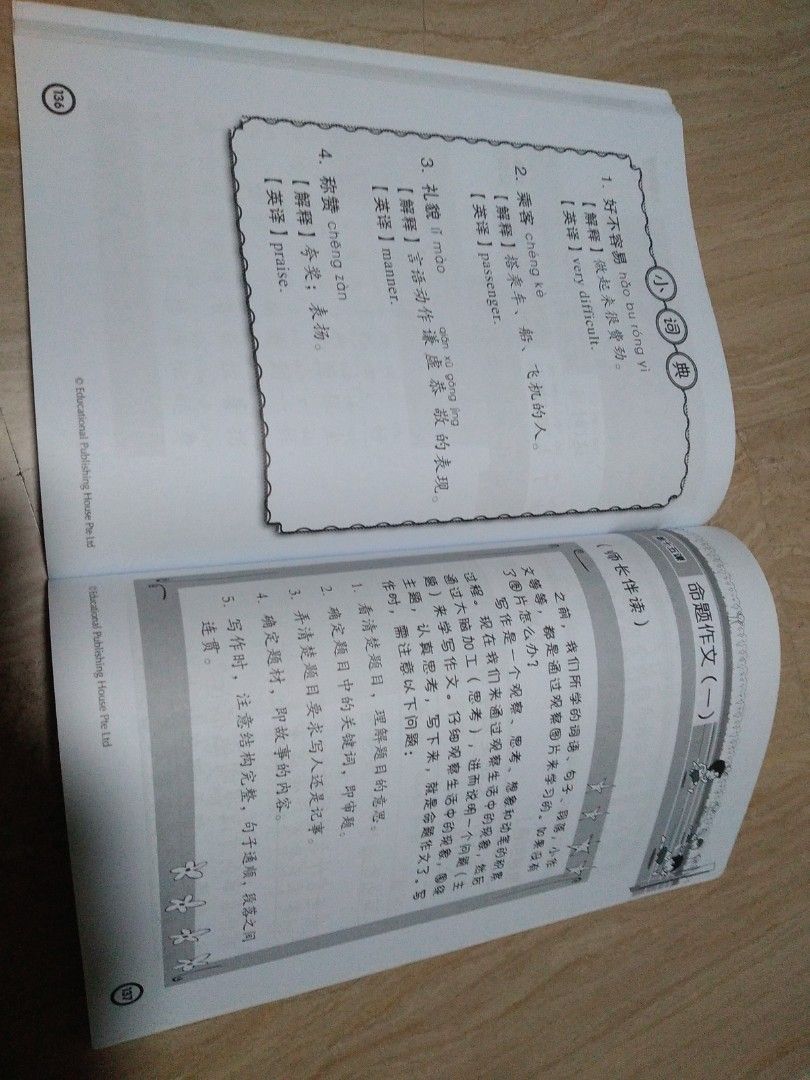 小词典
1. 好不容易 hǎo bu róng yì
【解释】做起来很费劲。
【英译】very difficult.
2. 乘客 chéng kè
【解释】搭乘车、船、飞机的人。
【英译】passenger.
3. 礼貌 lǐ mào
qiān xū gōng jìng
【解释】言语动作谦虚恭敬的表现。
【英译】manner.
4. 称赞 chēng zàn
【解释】夸奖；表扬。
【英译】praise.
136
© Educational Publishing House Pte Ltd
命题作文（一）
（师长伴读）
之前，我们所学的词语、句子、段落，小作
文等等，都是通过观察图片来学习的。如果没有
了图片怎么办？
写作是一个观察、思考、想象和动笔的积累
过程。现在我们来通过观察生活中的现象，然后
通过大脑加工（思考），进而说明一个问题（主
题）来学写作文。仔细观察生活中的现象，围绕
主题，认真思考，写下来，就是命题作文了。写
作时，需注意以下问题：
1. 看清楚题目，理解题目的意思。
2. 确定题目中的关键词，即审题。
3. 弄清楚题目要求写人还是记事。
4. 确定题材，即故事的内容。
5. 写作时，注意结构完整，句子通顺，段落之间
连贯。
©Educational Publishing House Pte Ltd
137